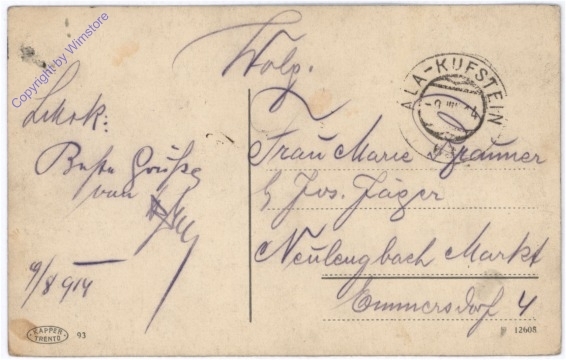 Copyright by Wimstore
Wolp.
ALA-KUFSTEIN
Beste Grüße
von
9/8 914
Frau Marie
b/ Jos. Jäger
Neulengbach Markt
Emmersdorf 4
KAPPER
TRENTO
93
12608